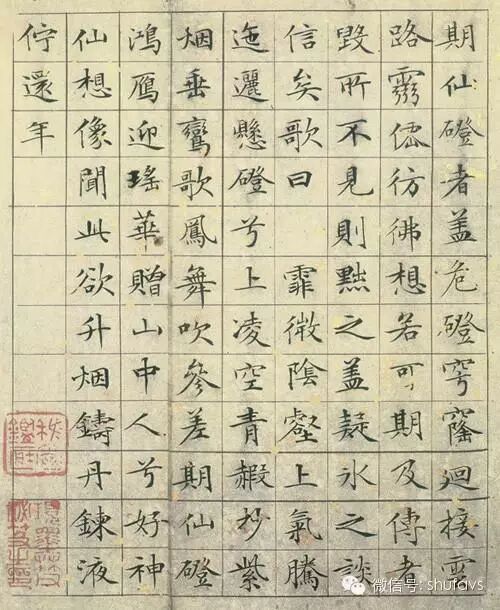 期仙磴者盖危磴穹窿迴接雲
路靈僊彷彿想若可期及傳者
毀所不見則黜之盖疑氷之談
信矣歌曰 霏微陰壑上氣騰
迤邐懸磴兮上凌空青赮杪紫
烟垂鸞歌鳳舞吹參差期仙磴
鴻鴈迎瑤華贈山中人兮好神
仙想像聞此欲升烟鑄丹鍊液
佇還年
微信号: shufavs